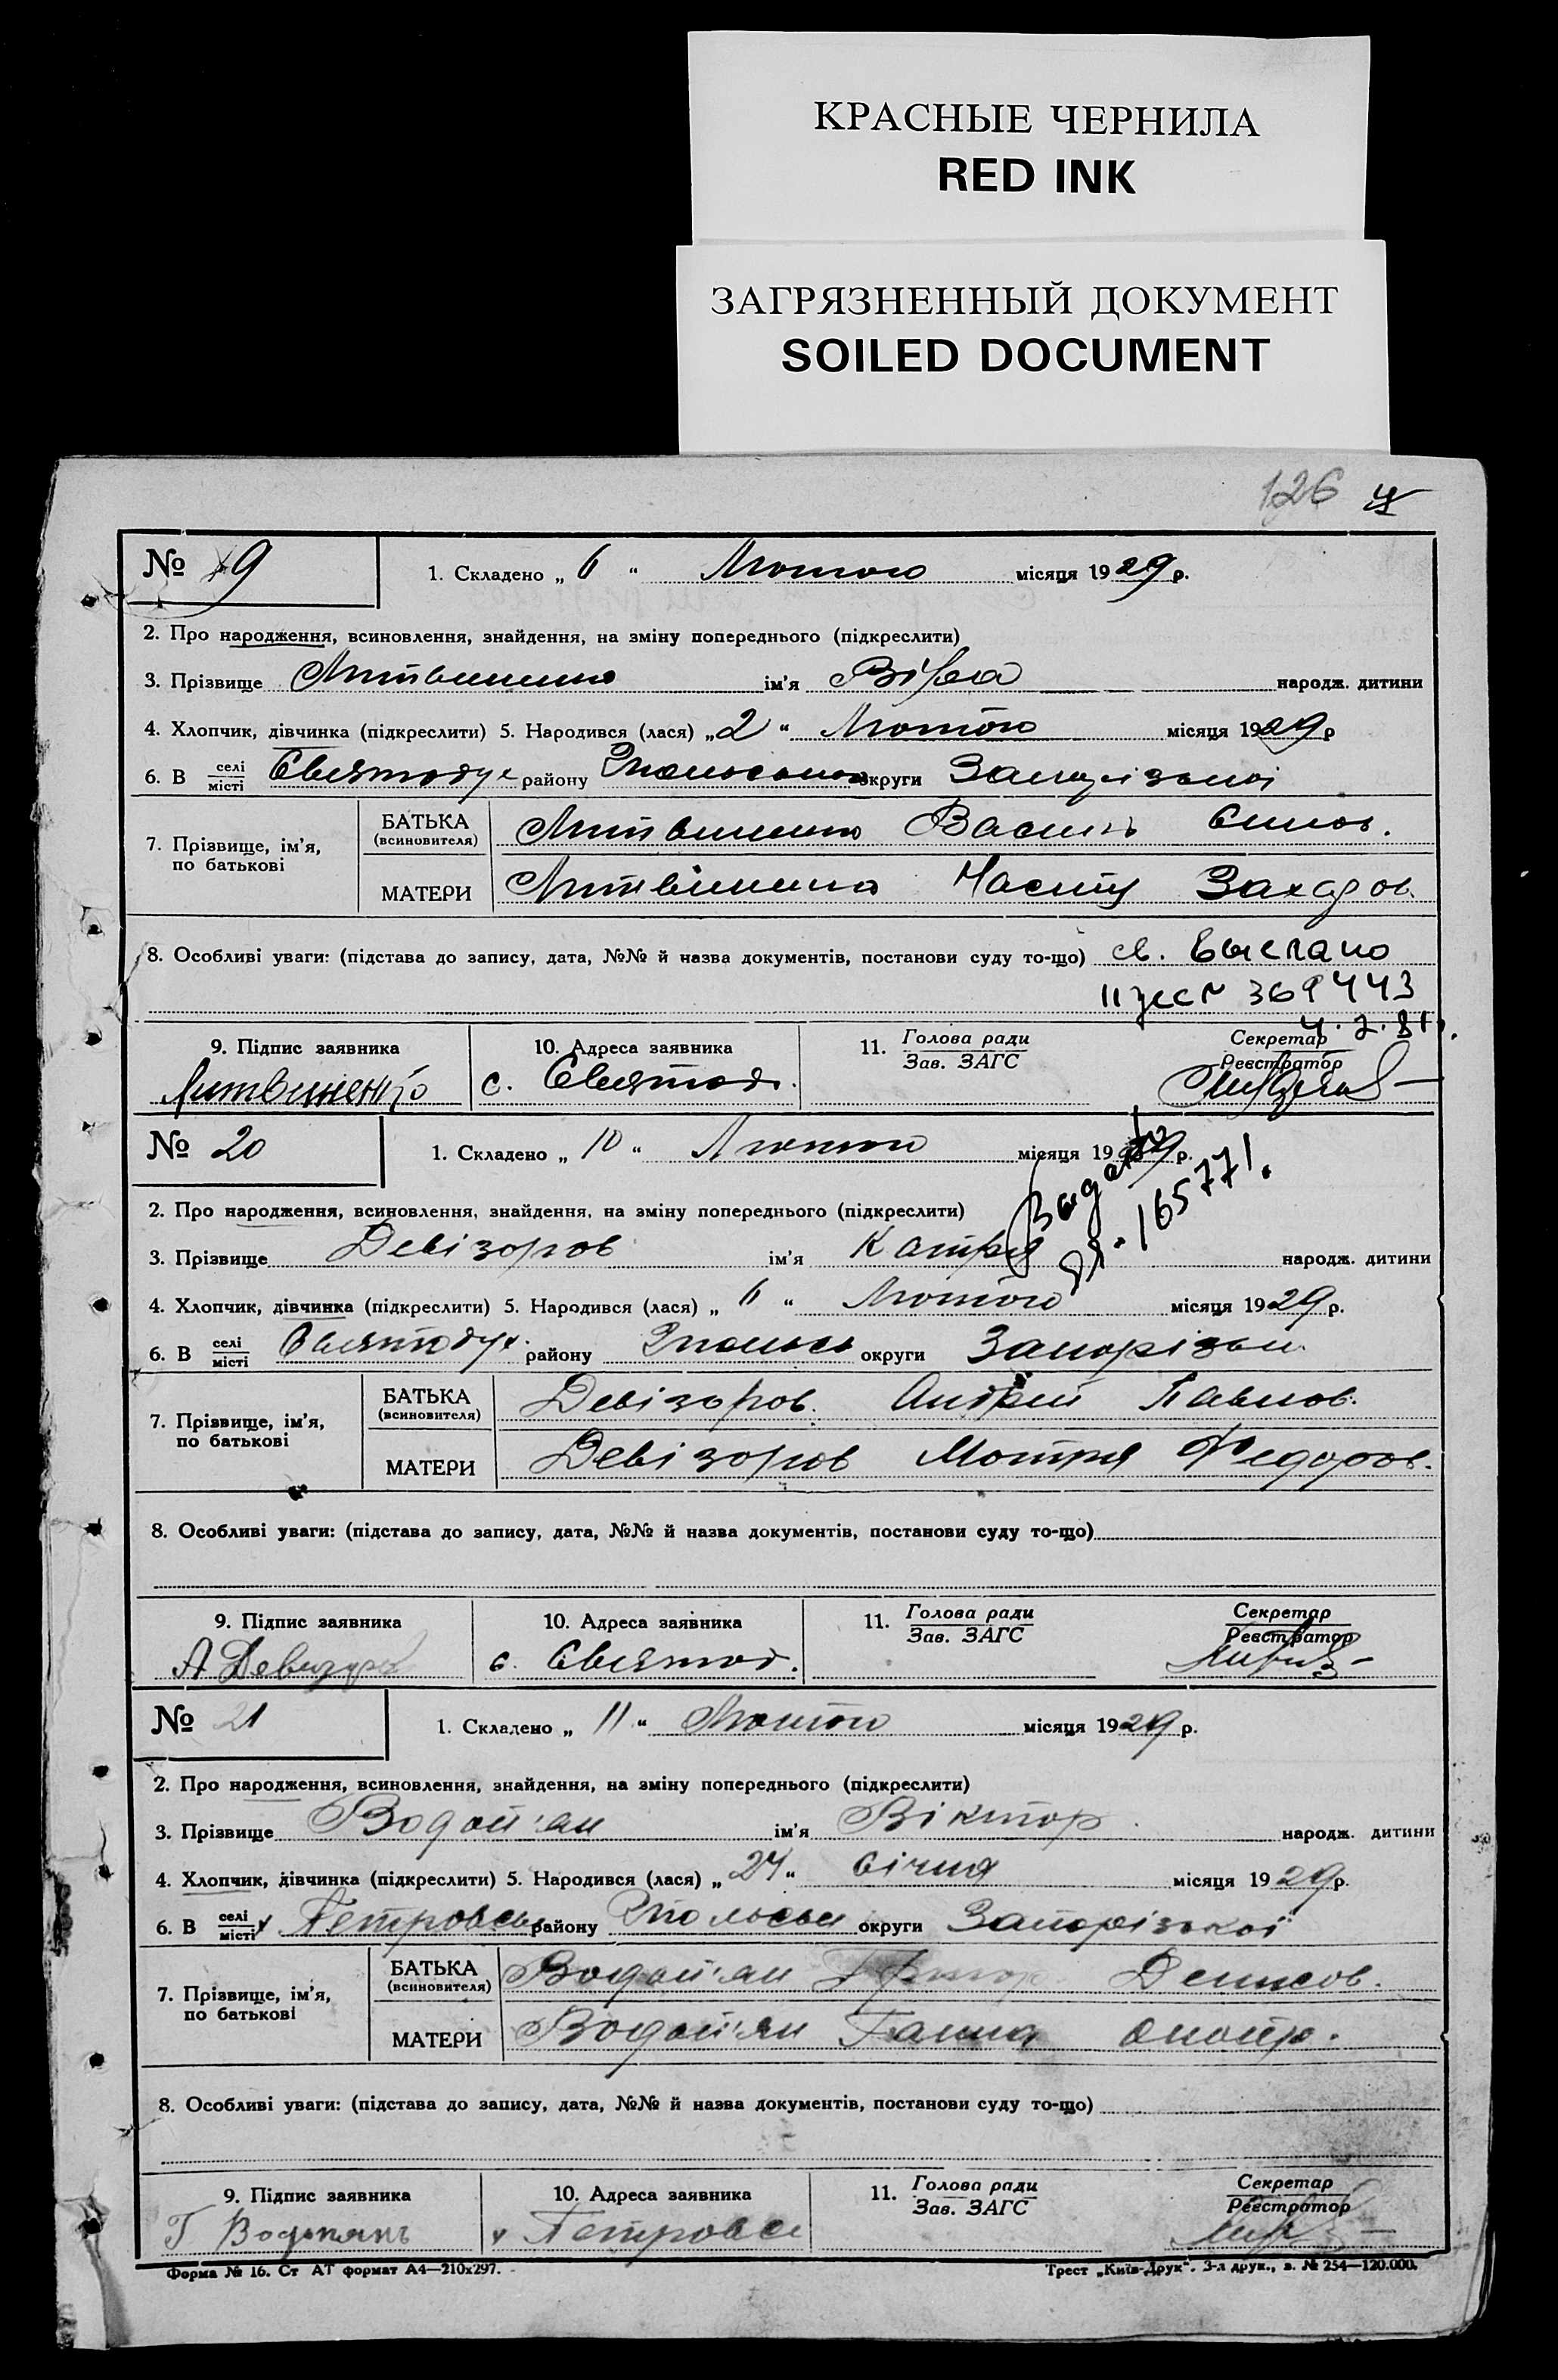 КРАСНЫЕ ЧЕРНИЛА
RED INK
ЗАГРЯЗНЕННЫЙ ДОКУМЕНТ
SOILED DOCUMENT
126
№ 19 1. Складено „ 6 “ Лютого місяця 1929 р.
2. Про народження, всиновлення, знайдення, на зміну попереднього (підкреслити)
3. Прізвище Литвиненко ім'я Віра народж. дитини
4. Хлопчик, дівчинка (підкреслити) 5. Народився (лася) „ 2 “ Лютого місяця 1929 р
6. В селі/місті Святодух району округи Запорізької
7. Прізвище, ім'я, по батькові
БАТЬКА (всиновителя) Литвиненко Василь
МАТЕРИ Литвіненко Насття Захаров.
8. Особливі уваги: (підстава до запису, дата, №№ й назва документів, постанови суду то-що) св. выслано
369443
9. Підпис заявника 10. Адреса заявника 11. Голова ради/Зав. ЗАГС Секретар/Реєстратор
Литвиненко с. Святод.
№ 20 1. Складено „ 10 “ Лютого місяця 1929 р.
165771.
2. Про народження, всиновлення, знайдення, на зміну попереднього (підкреслити)
3. Прізвище Девізоров ім'я Катря народж. дитини
4. Хлопчик, дівчинка (підкреслити) 5. Народився (лася) „ 6 “ Лютого місяця 1929 р.
6. В селі/місті Святодух. району округи Запорізьк.
7. Прізвище, ім'я, по батькові
БАТЬКА (всиновителя) Девізоров. Андрій Павлов.
МАТЕРИ Девізоров Мотря Федоров.
8. Особливі уваги: (підстава до запису, дата, №№ й назва документів, постанови суду то-що)
9. Підпис заявника 10. Адреса заявника 11. Голова ради/Зав. ЗАГС Секретар/Реєстратор
с. Святод.
№ 21 1. Складено „ 11 “ Лютого місяця 1929 р.
2. Про народження, всиновлення, знайдення, на зміну попереднього (підкреслити)
3. Прізвище Водоп'ян ім'я Віктор народж. дитини
4. Хлопчик, дівчинка (підкреслити) 5. Народився (лася) „ 24 “ Січня місяця 1929 р.
6. В селі/місті району округи Запорізької
7. Прізвище, ім'я, по батькові
БАТЬКА (всиновителя) Водоп'ян Денисов.
МАТЕРИ Водоп'ян Ганна
8. Особливі уваги: (підстава до запису, дата, №№ й назва документів, постанови суду то-що)
9. Підпис заявника 10. Адреса заявника 11. Голова ради/Зав. ЗАГС Секретар/Реєстратор
Г Водопянъ
Форма № 16. Ст АТ формат А4—210х297. Трест „Київ-Друк“. 3-я друк., з. № 254—120.000.